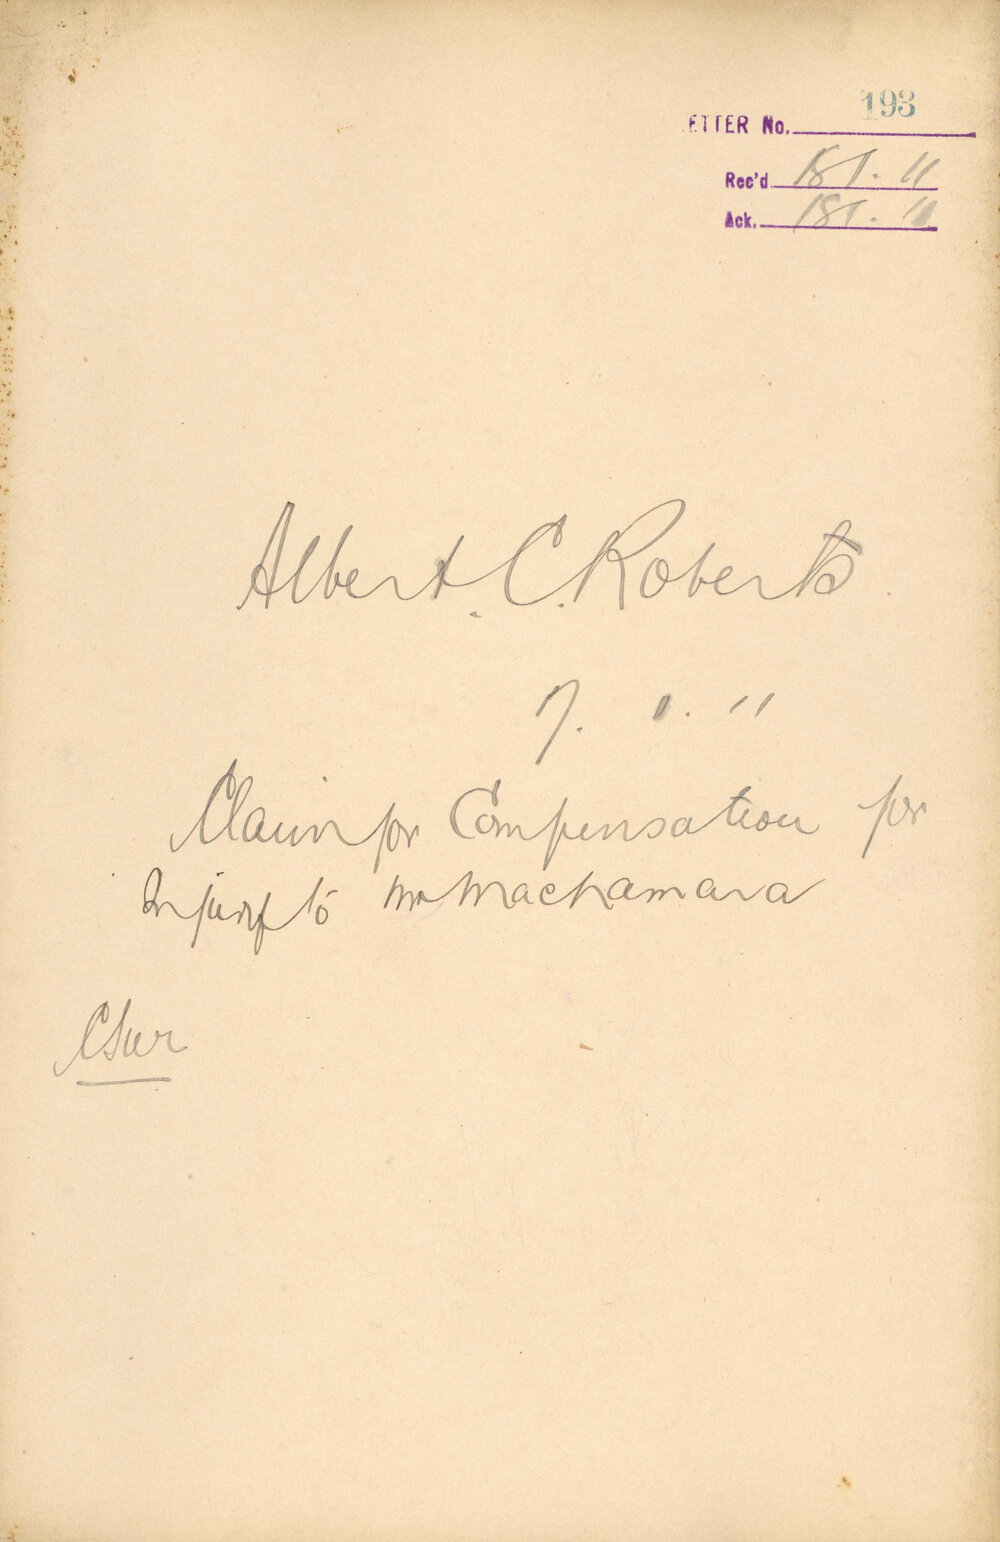 ETTER No. 193
Rec'd 18 1. 11
Ack. 18 1. 11
Albert. C. Roberts
7. 1. 11
Claim for Compensation for
Injury to Mr Macnamara